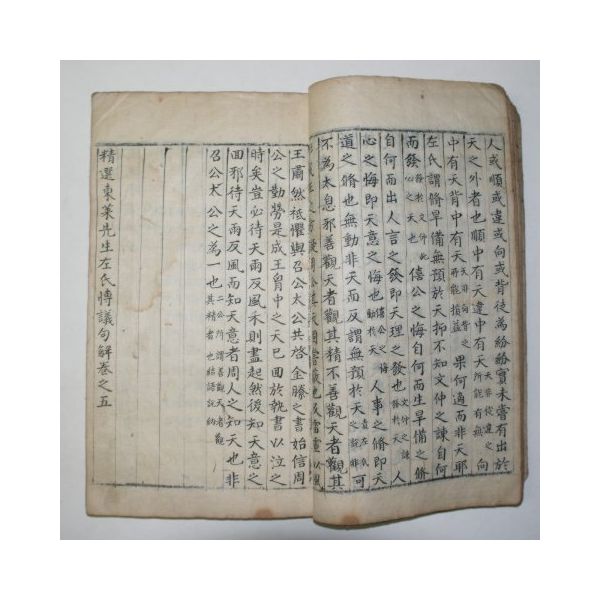 人或順或違或向或背徒爲紛紛實未嘗有出於
天之外者也順中有天違中有天
向
中有天背中有天
果何適而非天耶
左氏謂脩旱備無預於天抑不知文仲之諫自何
而發
僖公之悔自何而生旱備之脩
自何而出人言之發即天理之發也
人
心之悔即天意之悔也
人事之脩即天
道之脩也無動非天而反謂無預於天
可
不爲太息邪善觀天者觀其精不善觀天者觀其
王肅然祗懼與召公太公共啓金縢之書始信周
公之勤勞是成王胷中之天已回於執書以泣之
時矣豈必待天雨反風禾則盡起然後知天意之
回邪待天雨反風而知天意者周人之知天也非
召公太公之爲一也
精選東萊先生左氏博議句解卷之五